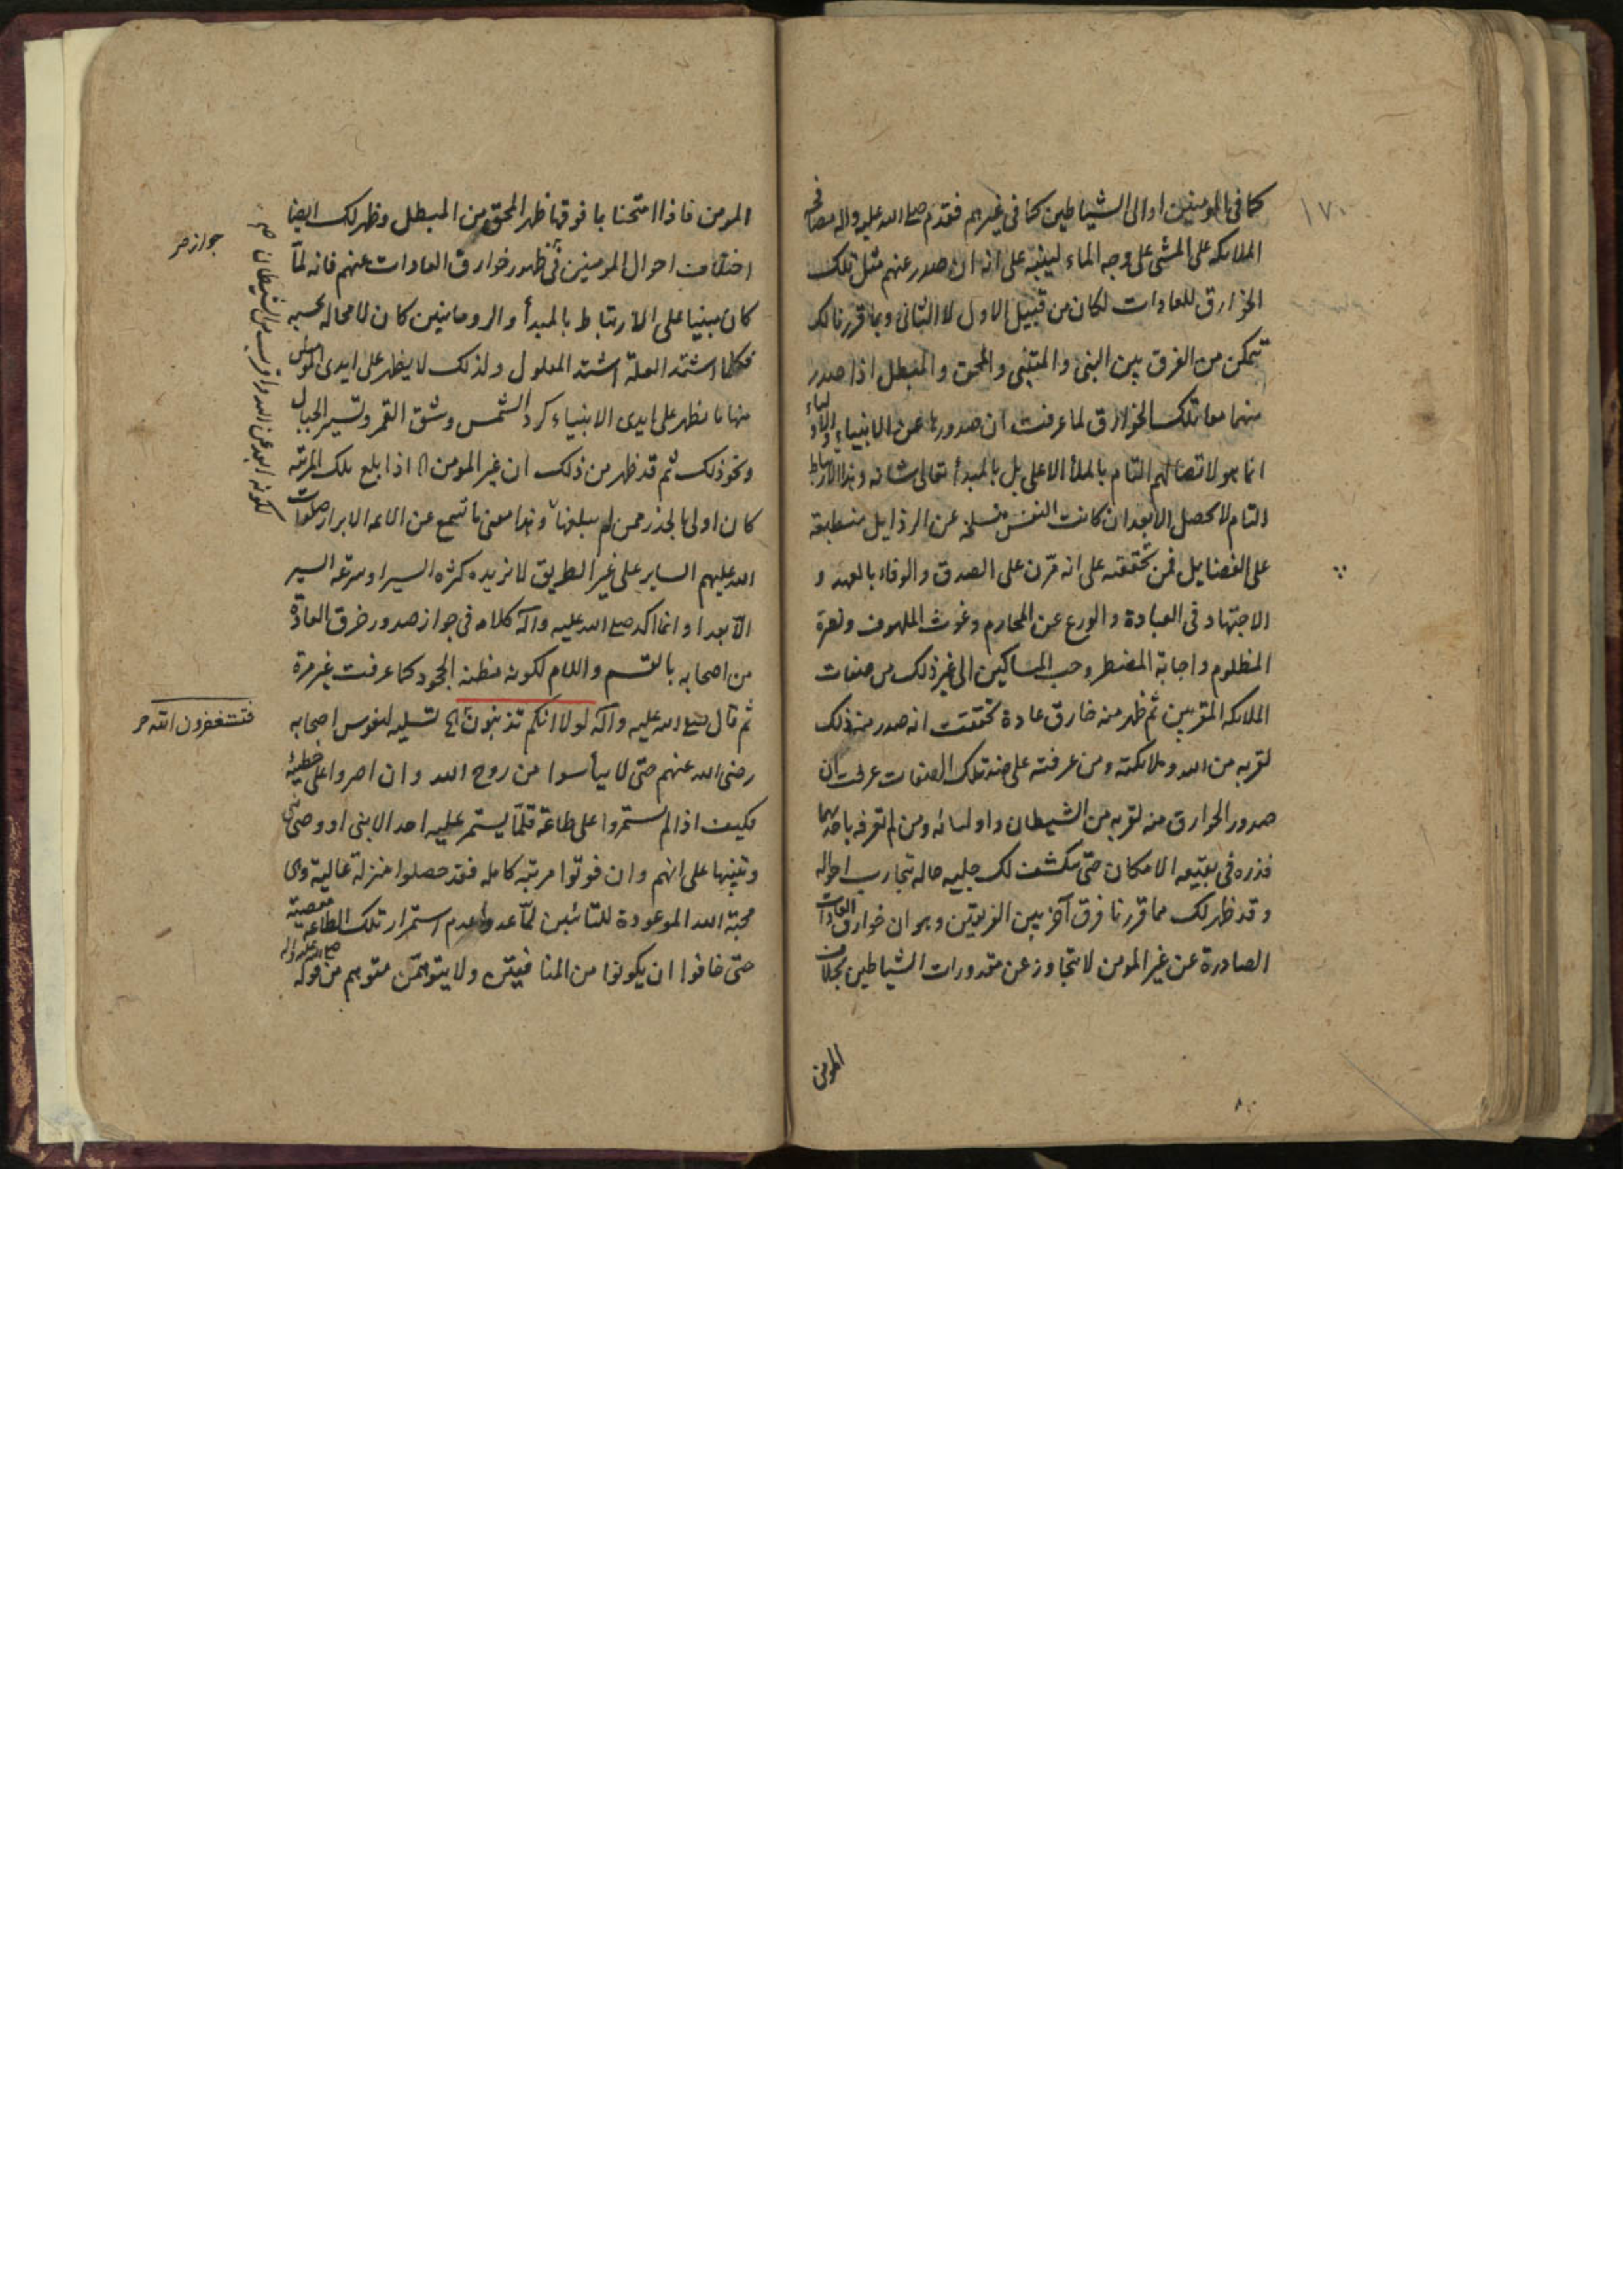 ١٧٠
كما فى المومنين او الى الشياطين كما فى غيرهم فقدم صلى الله عليه واله مصافحة
الملائكة على المشى على وجه الماء لينبه على انه ان صدر عنهم مثل تلك
الخوارق للعادات لكان من قبيل الاول لا الثانى وبما قررنا لك
تتمكن من الفرق بين النبى والمتنبى والمحق والمبطل اذا صدر
منهما معا تلك الخوارق لما عرفت ان صدورها عن الانبياء والاولياء
انما هو لاتصالهم التام بالملأ الاعلى بل بالمبدأ تعالى شانه وهذا الارتباط
التام لا يحصل الا بعد ان كانت النفس منسلخة عن الرذايل منطبعة
على الفضايل فمن تحققته على انه مرن على الصدق والوفاء بالعهد و
الاجتهاد فى العبادة والورع عن المحارم وغوث الملهوف ونصرة
المظلوم واجابة المضطر وحب المساكين الى غير ذلك من صفات
الملائكة المقربين ثم ظهر منه خارق عادة تحققت انه صدر منه ذلك
لقربه من الله وملائكته ومن عرفته على ضد تلك الصفات عرفت ان
صدور الخوارق منه لقربه من الشيطان واوليائه ومن لم تعرفه باحدهما
فذره فى بقعة الامكان حتى يكشف لك جلية حاله تجارب احواله
وقد ظهر لك مما قررنا فرق آخر بين الفريقين وهو ان خوارق العادات
الصادرة عن غير المومن لا تتجاوز عن مقدورات الشياطين بخلاف
المومن
المومن فاذا امتحنا بما فوقها ظهر المحق من المبطل وظهر لك ايضا
اختلاف احوال المومنين فى ظهور خوارق العادات عنهم فانه لمّا
جواز صر
كان مبنيا على الارتباط بالمبدأ والروحانيين كان لا محالة بحسبه
فكلما اشتد العلة اشتد المعلول ولذلك لا يظهر على ايدى المومنين
منها ما يظهر على ايدى الانبياء كرد الشمس وشق القمر وتسيير الجبال
ونحو ذلك ثم قد ظهر من ذلك ان غير المومن اذا بلغ تلك المرتبة
كان اولى بالحذر ممن لم يبلغها وهذا معنى ما تسمع عن الائمة الابرار صلوات
لكونه ابعد عن الله واقرب من الشيطان صح
الله عليهم الساير على غير الطريق لا تزيده كثرة السير او سرعة السير
الّا بعدا وانما اكد صلى الله عليه وآله كلامه فى جواز صدور خرق العادة
من اصحابه بالقسم واللام لكونه مظنة الجحود كما عرفت غير مرة
ثم قال صلى الله عليه وآله لولا انكم تذنبون الخ تسلية لنفوس اصحابه
فتستغفرون الله صر
رضى الله عنهم حتى لا ييأسوا من روح الله وان اصروا على خطيئة
فكيف اذا لم يستمروا على طاعة قلّما يستمر عليه احد الا نبى او وصى نبى
وتنبيها على انهم وان فوتوا مرتبة كاملة فقد حصلوا منزلة عالية وهى
محبة الله الموعودة للتائبين لمّا عدوا عدم استمرار تلك الطاعة معصية
حتى خافوا ان يكونوا من المنافقين ولا يتوهمّن متوهم من قوله صلى الله عليه واله